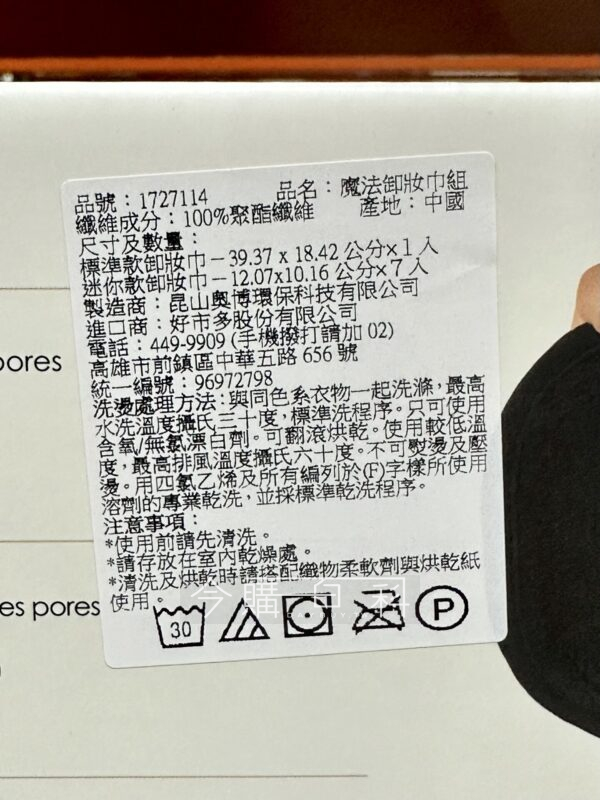 品號：1727114 品名：魔法卸妝巾組
纖維成分：100%聚酯纖維 產地：中國
尺寸及數量：
標準款卸妝巾－39.37 x 18.42 公分×1 入
迷你款卸妝巾－12.07x10.16 公分×7 入
製造商：昆山奧博環保科技有限公司
進口商：好市多股份有限公司
電話：449-9909 (手機撥打請加 02)
高雄市前鎮區中華五路 656 號
統一編號：96972798
洗燙處理方法：與同色系衣物一起洗滌，最高
水洗溫度攝氏三十度，標準洗程序。只可使用
含氧/無氯漂白劑。可翻滾烘乾。使用較低溫
度，最高排風溫度攝氏六十度。不可熨燙及壓
燙。用四氯乙烯及所有編列於(F)字樣所使用
溶劑的專業乾洗，並採標準乾洗程序。
注意事項：
*使用前請先清洗。
*請存放在室內乾燥處。
*清洗及烘乾時請搭配織物柔軟劑與烘乾紙
使用。
30 P
今購百科
pores
es pores